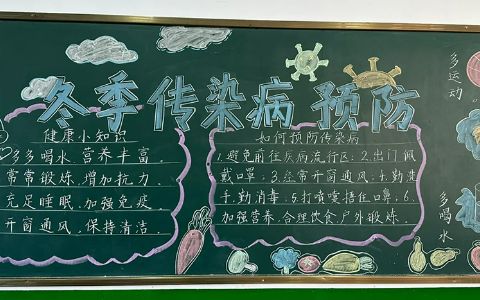 冬季传染病预防
健康小知识
多多喝水、营养丰富。
常常锻炼、增加抗力。
充足睡眠、加强免疫。
开窗通风、保持清洁。
如何预防传染病
1.避免前往疾病流行区；2.出门佩
戴口罩；3.经常开窗通风；4.勤洗
手，勤消毒；5.打喷嚏捂住口鼻；6.
加强营养、合理饮食、户外锻炼。
多运动
多喝水